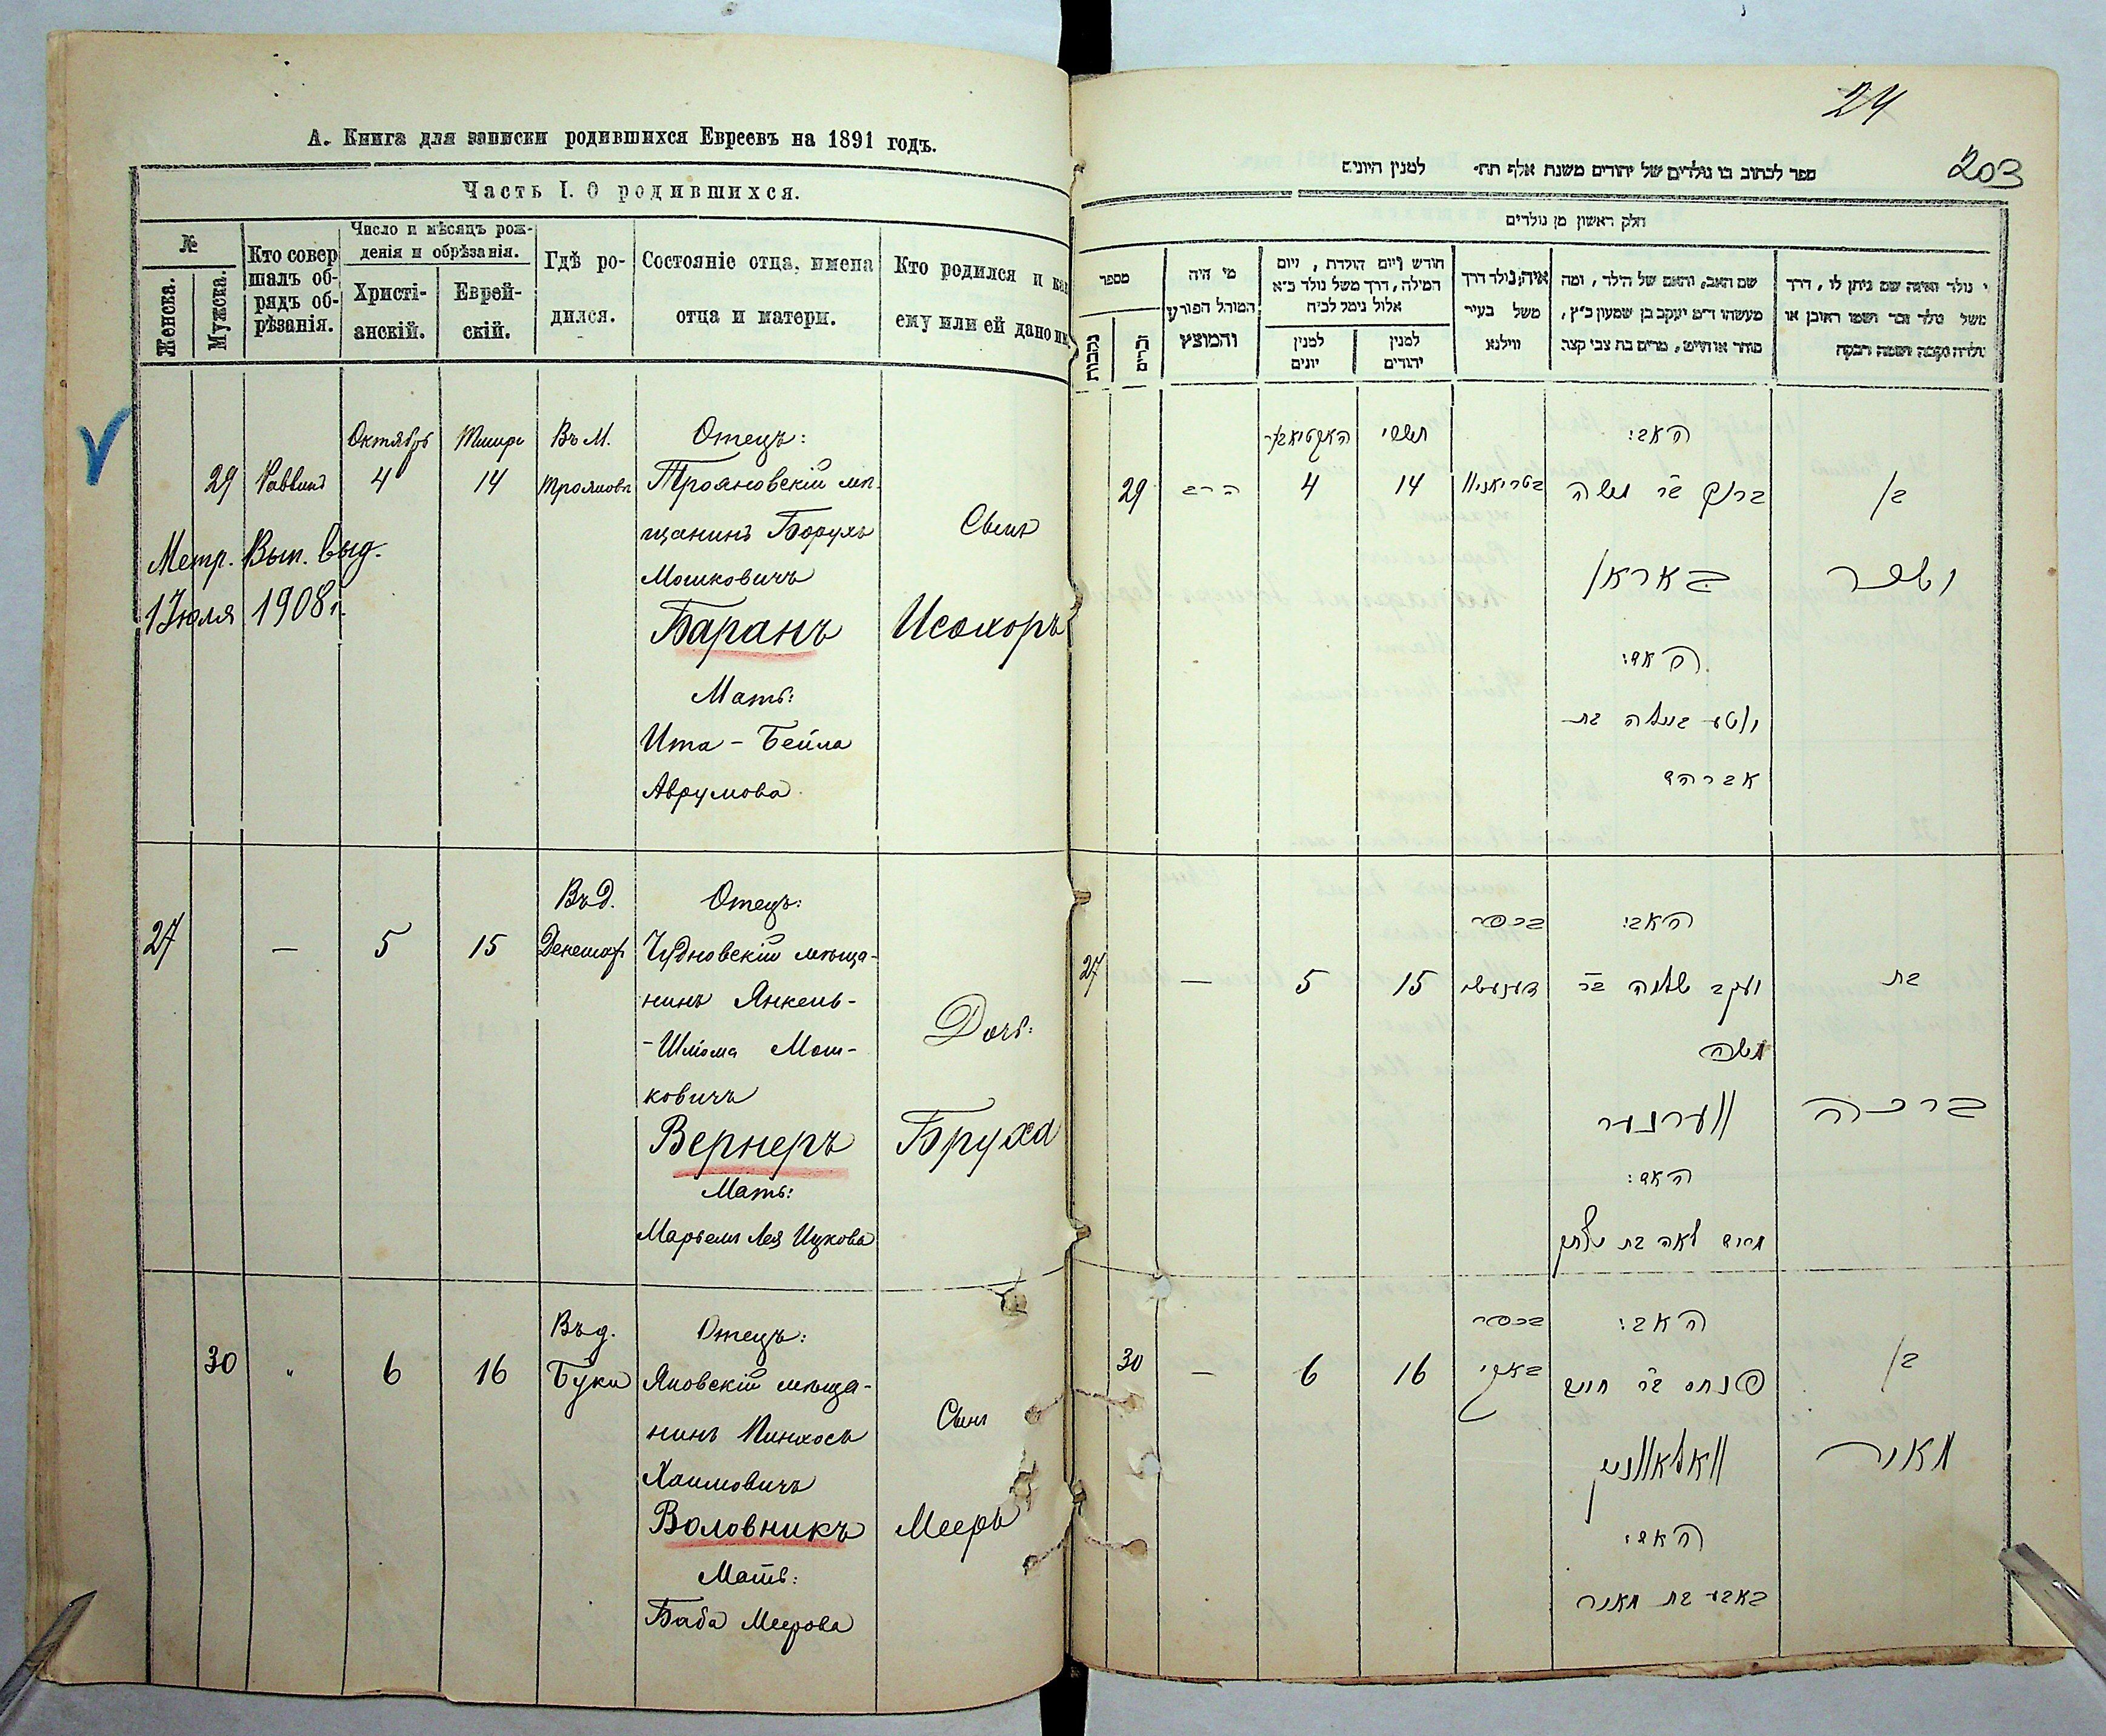 А. Книга для записки родившихся Евреевъ на 1891 годъ.
Часть I. О родившихся.
№
Женска.
Мужска.
Кто совер
шалъ об-
рядъ об-
рѣзанія.
Число и мѣсяцъ рож-
денія и обрѣзанія.
Христі-
анскій.
Еврей-
скій.
Гдѣ ро-
дился.
Состояніе отца, имена
отца и матери.
Кто родился и как
ему или ей дано им
Октябрь
Тишри
Въ М.
Отецъ:
29
Раввинъ
4
14
Трояновѣ
Трояновскій мѣ-
щанинъ Борухъ
Мошковичъ
Баранъ
Мать:
Ита - Бейла
Аврумова
Сынъ
Исохоръ
Метр. Вып. выд.
1 Июля 1908 г.
27
—
5
15
Въ д.
Денешах
Отецъ:
Чудновскій мѣща-
нинъ Янкель-
- Шлёма Мош-
ковичъ
Вернеръ
Мать:
Марьемъ Лея Ицкова
Дочь:
Бруха
30
"
6
16
Въ д.
Буки
Отецъ:
Яновскій мѣща-
нинъ Пинхосъ
Хаимовичъ
Воловникъ
Мать:
Баба Меерова
Сынъ
Мееръ
24
203
ספר לכתוב בו נולדים של יהודים משנת אלף תת׳ למנין היונים
חלק ראשון מן נולדים
מספר
נקבות
זכרים
מי היה
המוהל הפורע
והמוצץ
חודש ויום הולדת, ויום
המילה, דרך משל נולד כ״א
אלול נימל לכ״ח
למנין
יונים
למנין
יהודים
איה נולד דרך
משל בעיר
ווילנא
שם האב, והאם של הילד, ומה
מעשהו ד״מ יעקב בן שמעון כ״ץ,
סוחר או חייט, מרים בת צבי קצב
י נולד ואיזה שם ניתן לו, דרך
משל נולד זכר ושמו ראובן או
נולדה נקבה ושמה רבקה
29
הרב
האקטיאבער
4
תשרי
14
בטריאנוו
האב:
ברוך בר משה
באראן
האם:
איטע ביילה בת
אברהם
בן
ישכר
27
—
5
15
בכפר
דענעשי
האב:
יעקב שלמה בר
משה
ווערנער
האם:
מרים לאה בת יצחק
בת
ברכה
30
—
6
16
בכפר
באקי
האב:
פנחס בר חיים
וואלאווניק
האם:
באבע בת מאיר
בן
מאיר